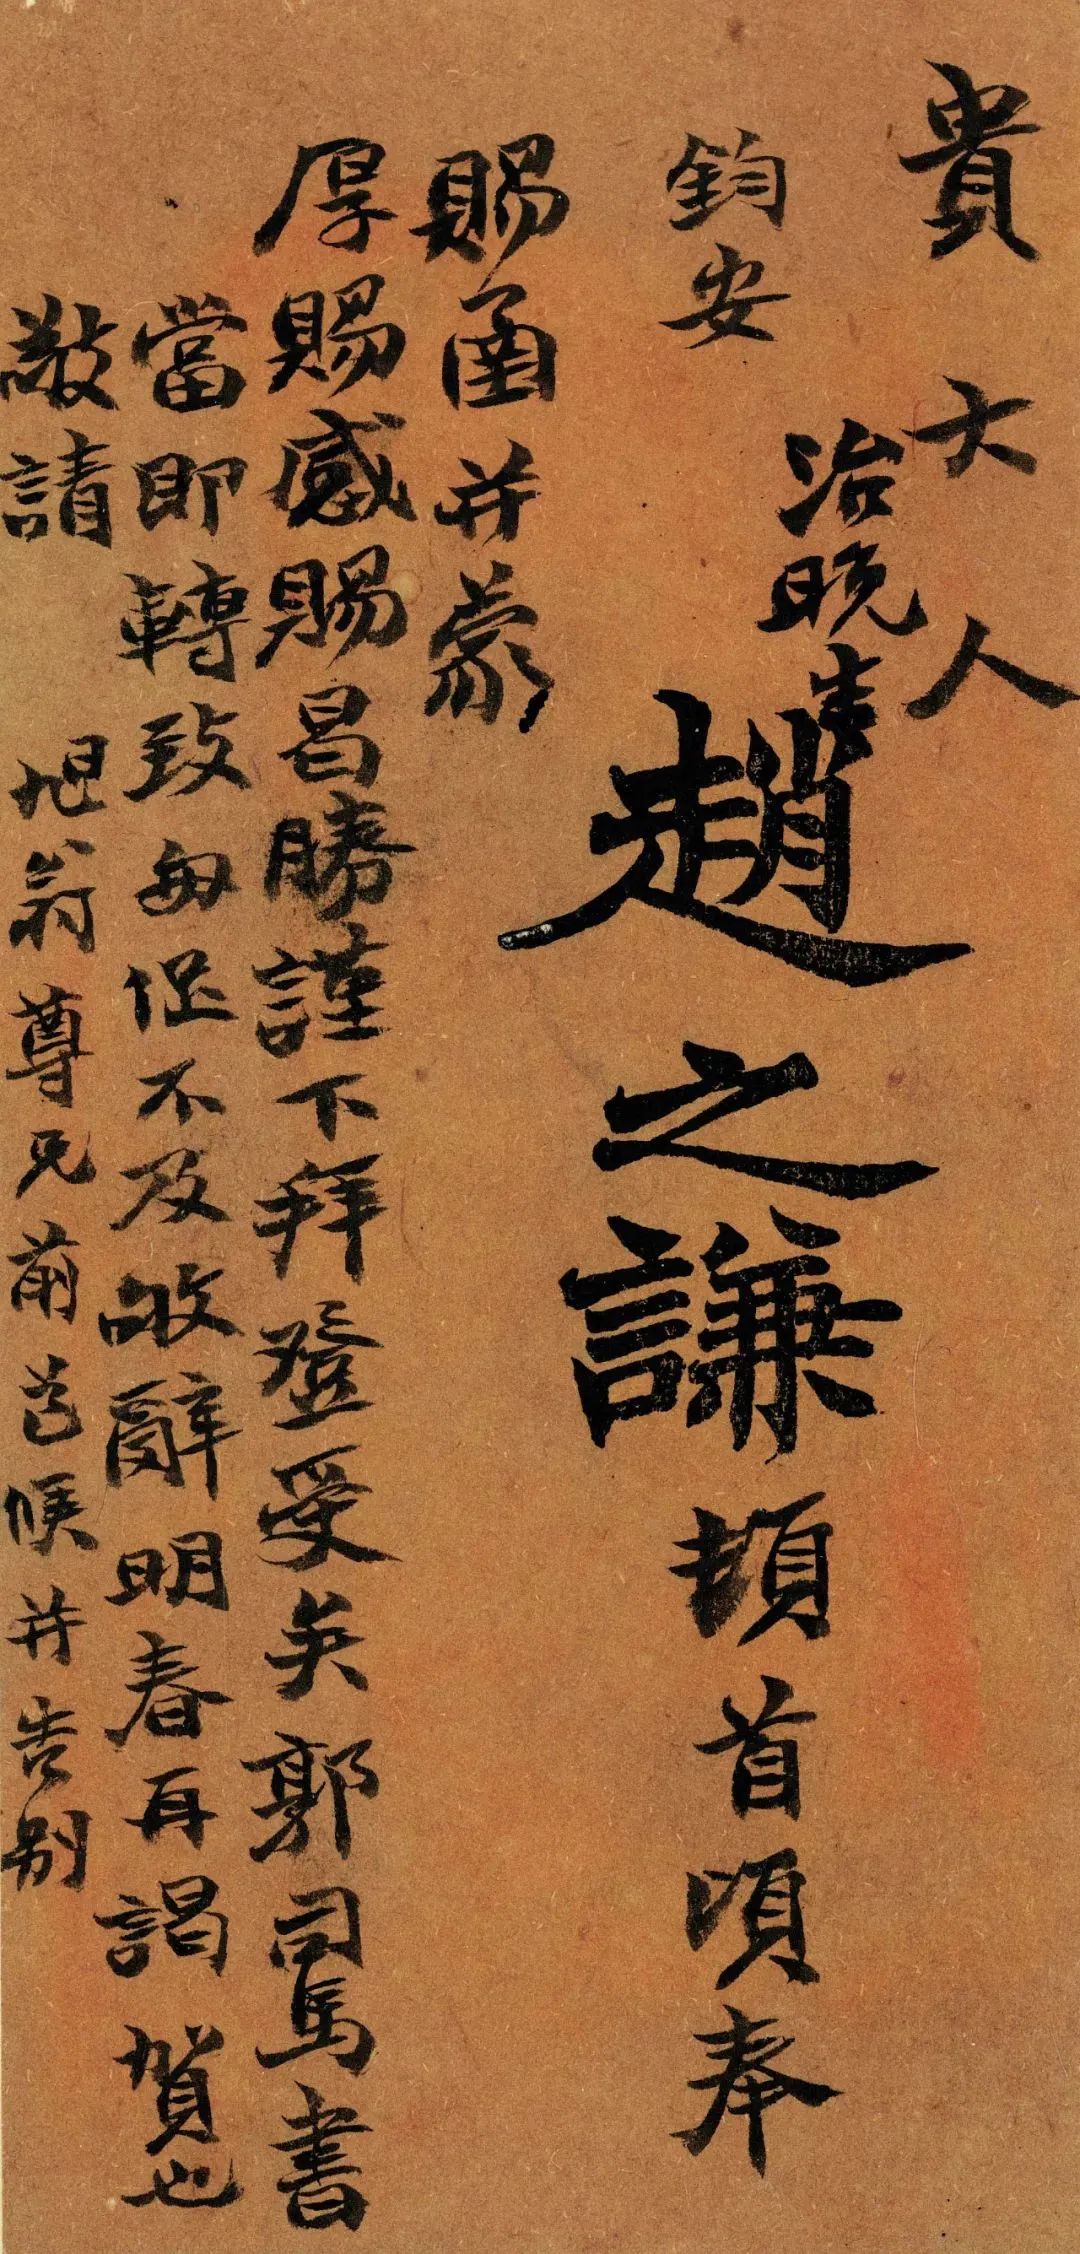 貴大人
鈞安 治晚生趙之謙頓首頃奉
賜函并蒙
厚賜感賜昌勝謹下拜登受矣郭司馬書
當即轉致匆促不及敂辭明春再謁賀也
敬請 旭翁尊兄前候并告別